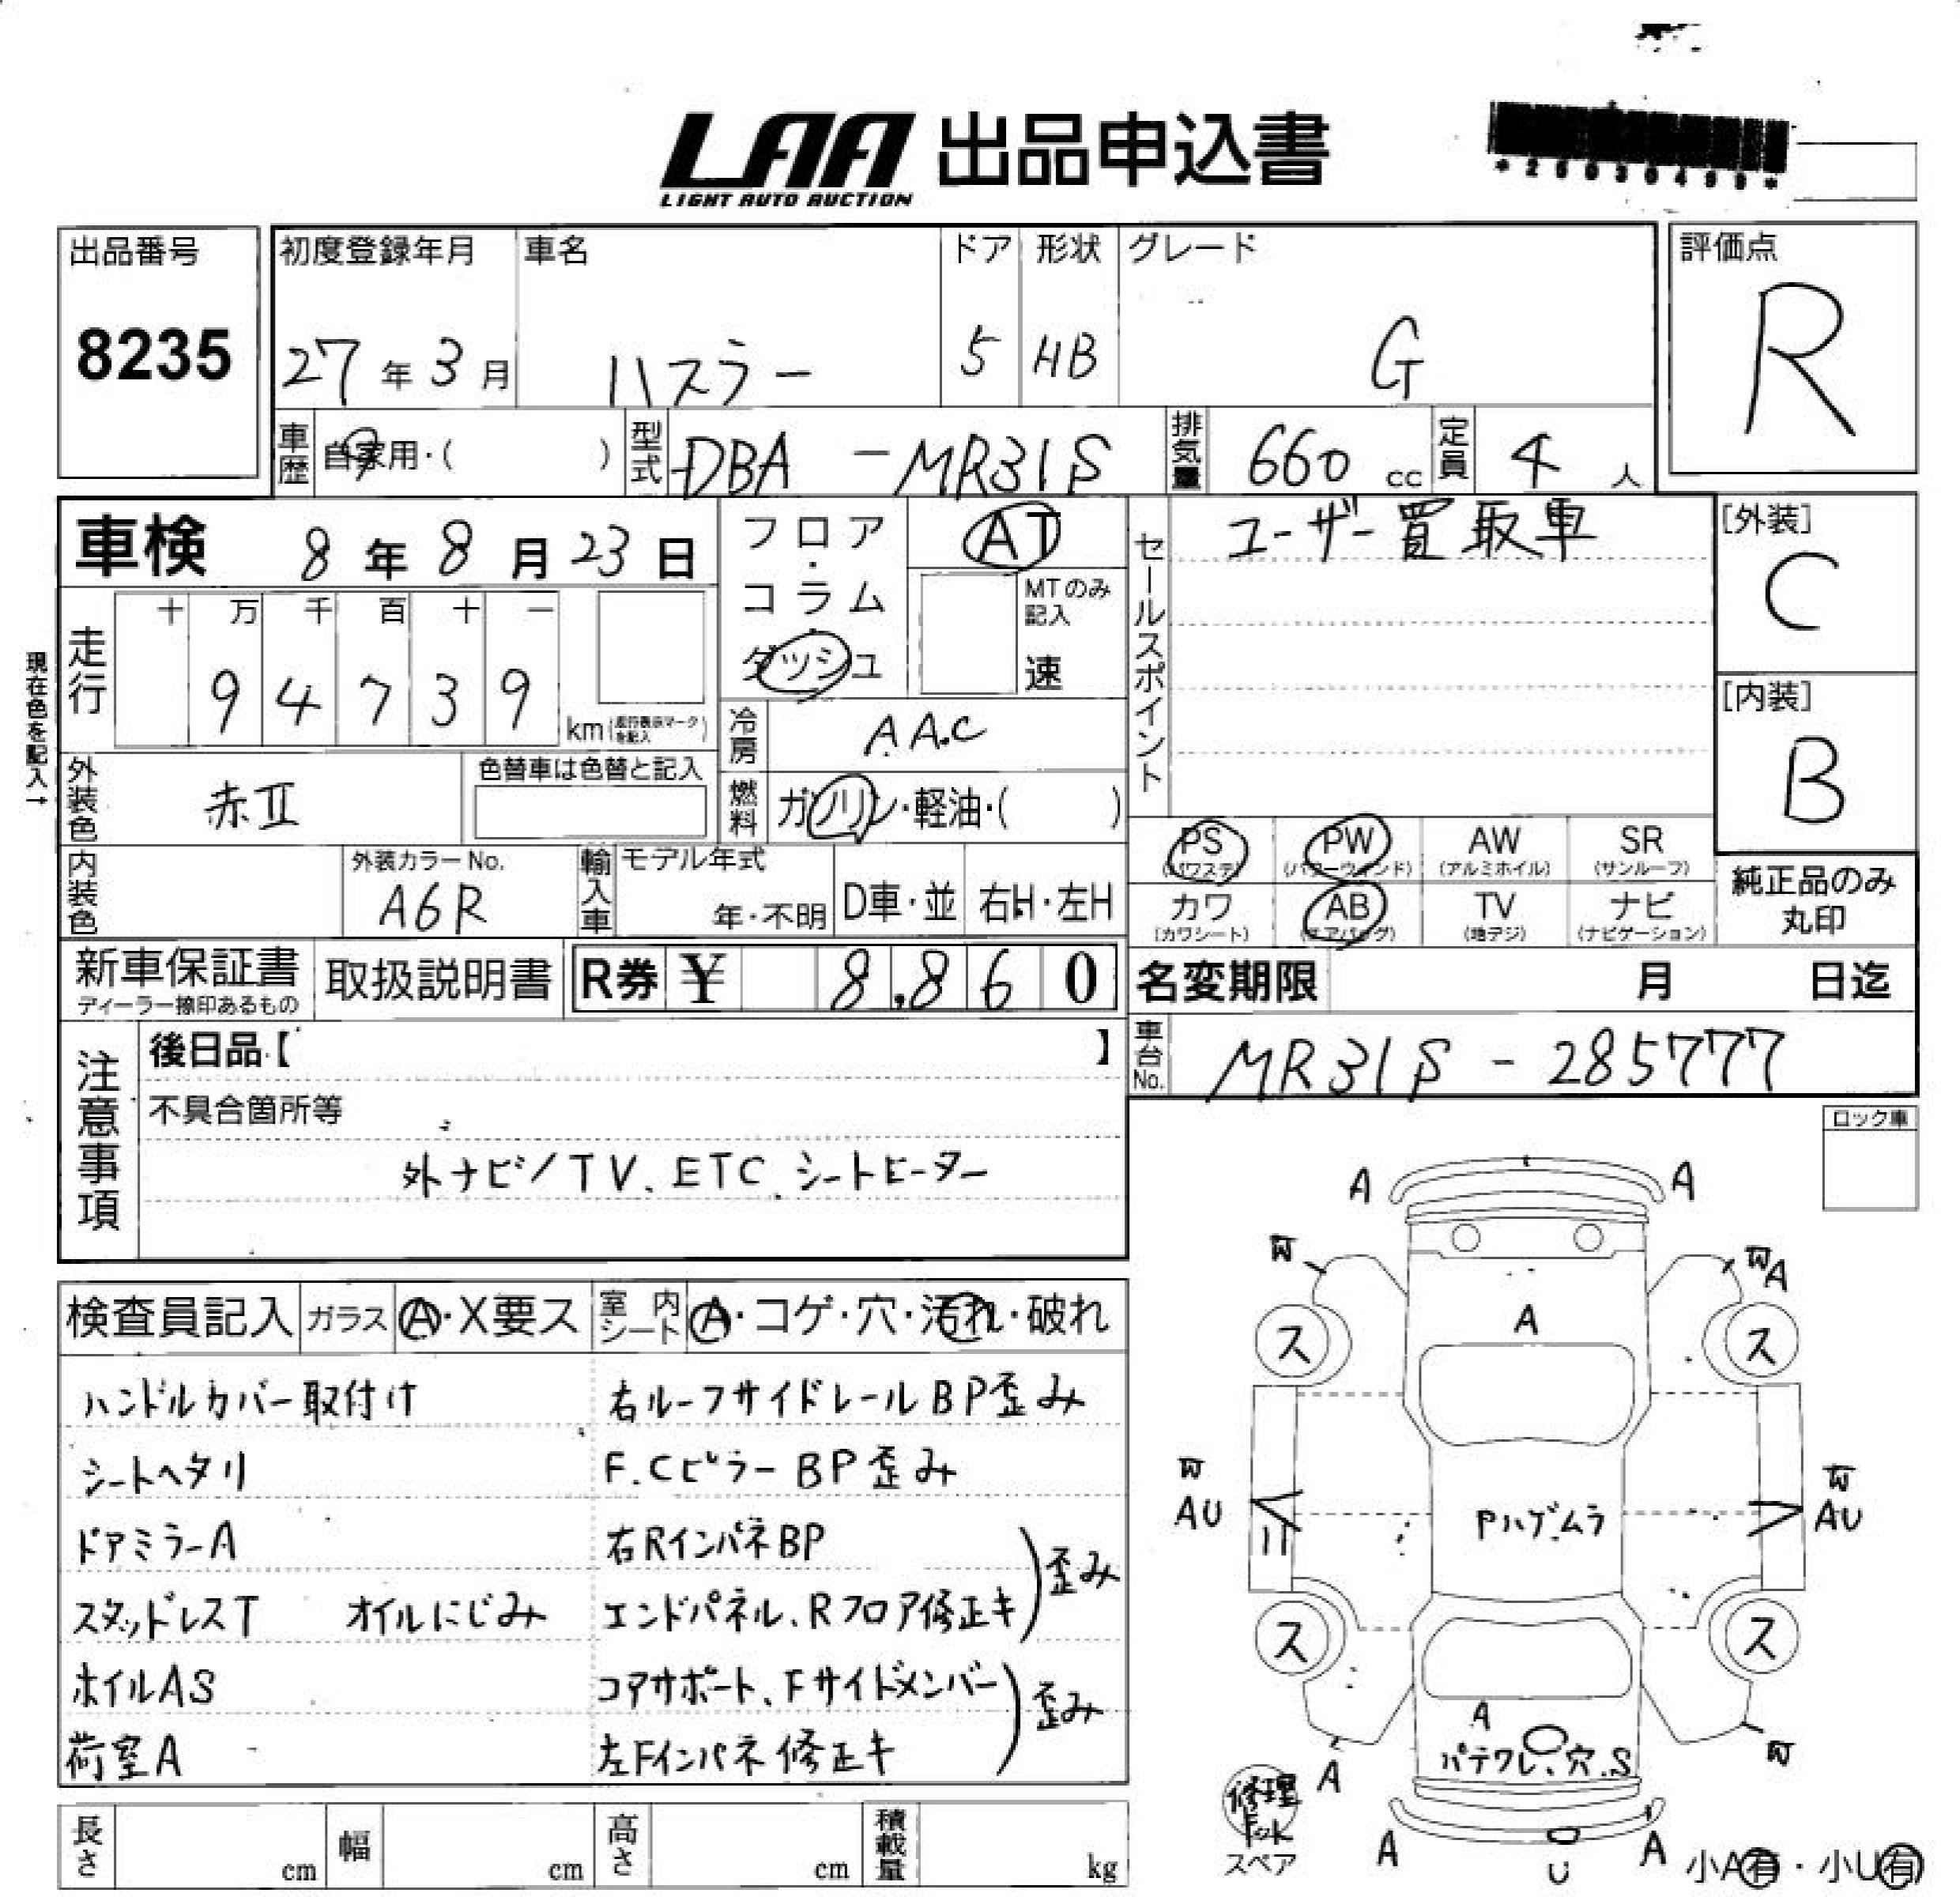 LAA 出品申込書
LIGHT AUTO AUCTION
出品番号
8235
初度登録年月
27年3月
車名
ハスラー
ドア
5
形状
HB
グレード
G
評価点
R
車歴
自家用・( )
型式
DBA-MR31S
排気量
660cc
定員
4人
車検
8年8月23日
フロア・コラム・ダッシュ
AT
MTのみ記入
速
セールスポイント
ユーザー買取車
[外装]
C
[内装]
B
現在色を記入→
走行
十 万 千 百 十 一
9 4 7 3 9
km(走行表示マークを記入)
冷房
AAC
燃料
ガソリン・軽油・( )
外装色
赤II
色替車は色替と記入
内装色
外装カラーNo.
A6R
輸入車
モデル年式
年・不明
D車・並
右H・左H
PS
(パワステ)
PW
(パワーウインド)
AW
(アルミホイル)
SR
(サンルーフ)
カワ
(カワシート)
AB
(エアバッグ)
TV
(地デジ)
ナビ
(ナビゲーション)
純正品のみ
丸印
新車保証書
ディーラー捺印あるもの
取扱説明書
R券 ¥ 8,860
名変期限
月 日迄
車台No.
MR31S-285777
注意事項
後日品【 】
不具合箇所等
外ナビ/TV、ETC、シートヒーター
ロック車
検査員記入
ガラス
A・X要ス
室内シート
A・コゲ・穴・汚れ・破れ
ハンドルカバー取付け
シートヘタリ
ドアミラーA
スタッドレスT オイルにじみ
ホイルAS
荷室A
右ルーフサイドレールBP歪み
F.CピラーBP歪み
右RインパネBP
エンドパネル、Rフロア修正キ
歪み
コアサポート、Fサイドメンバー
左Fインパネ修正キ
歪み
A
A
A
A
ス
ス
AU
AU
Pハゲ.ムラ
ス
ス
A
パテワレ、穴.S
A
修理
スペア
A
U
A
小A有・小U有
長さ
cm
幅
cm
高さ
cm
積載量
kg